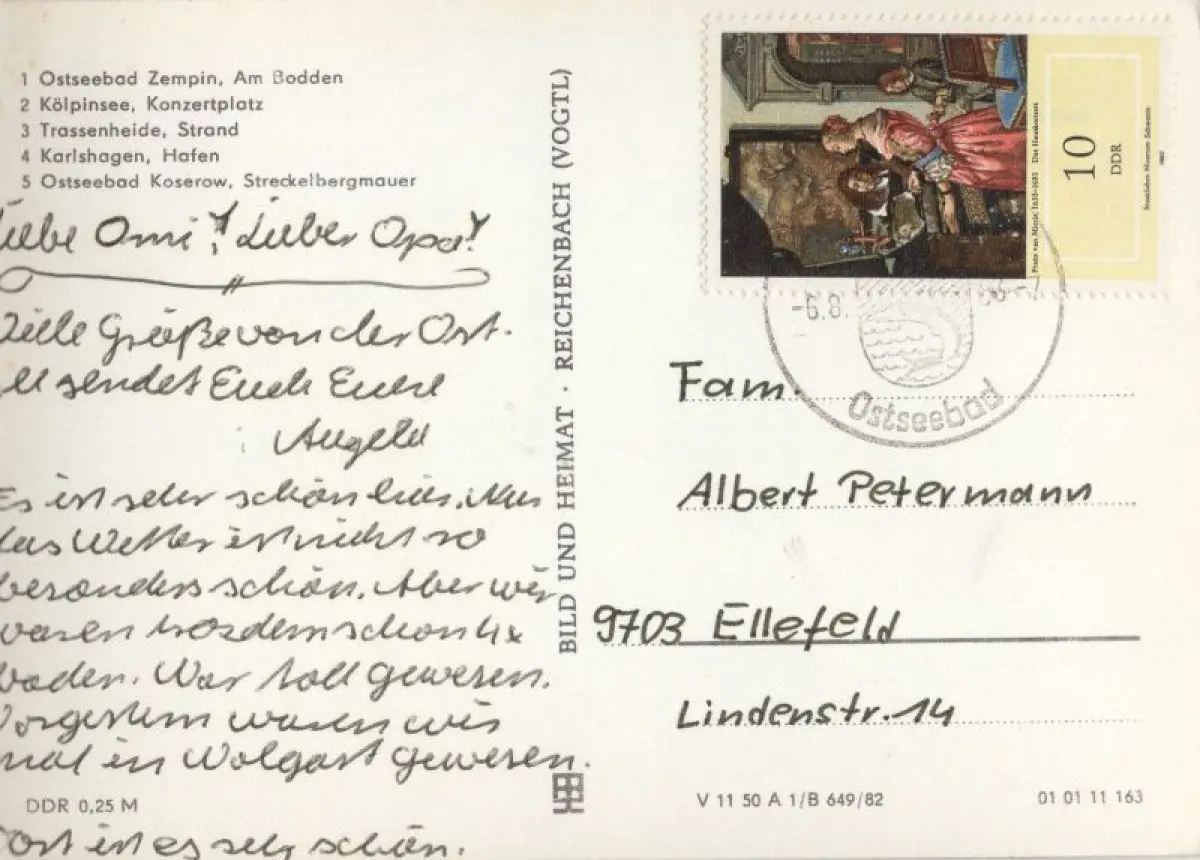 1 Ostseebad Zempin, Am Bodden
2 Kölpinsee, Konzertplatz
3 Trassenheide, Strand
4 Karlshagen, Hafen
5 Ostseebad Koserow, Streckelbergmauer
Liebe Omi! Lieber Opa!
Viele Grüße von der Ost-
see sendet Euch Eure
Angela
Es ist sehr schön hier. Nur
das Wetter ist nicht so
besonders schön. Aber wir
waren trozdem schon 4x
baden. War toll gewesen.
Vorgestern waren wir
mal in Wolgast gewesen.
DDR 0,25 M
Dort ist es sehr schön.
BILD UND HEIMAT · REICHENBACH (VOGTL)
Frans van Mieris 1635-1681 Das Hauskonzert
10
DDR
Staatliches Museum Schwerin
-6.8.
Ostseebad
Fam.
Albert Petermann
9703 Ellefeld
Lindenstr. 14
V 11 50 A 1/B 649/82
01 01 11 163